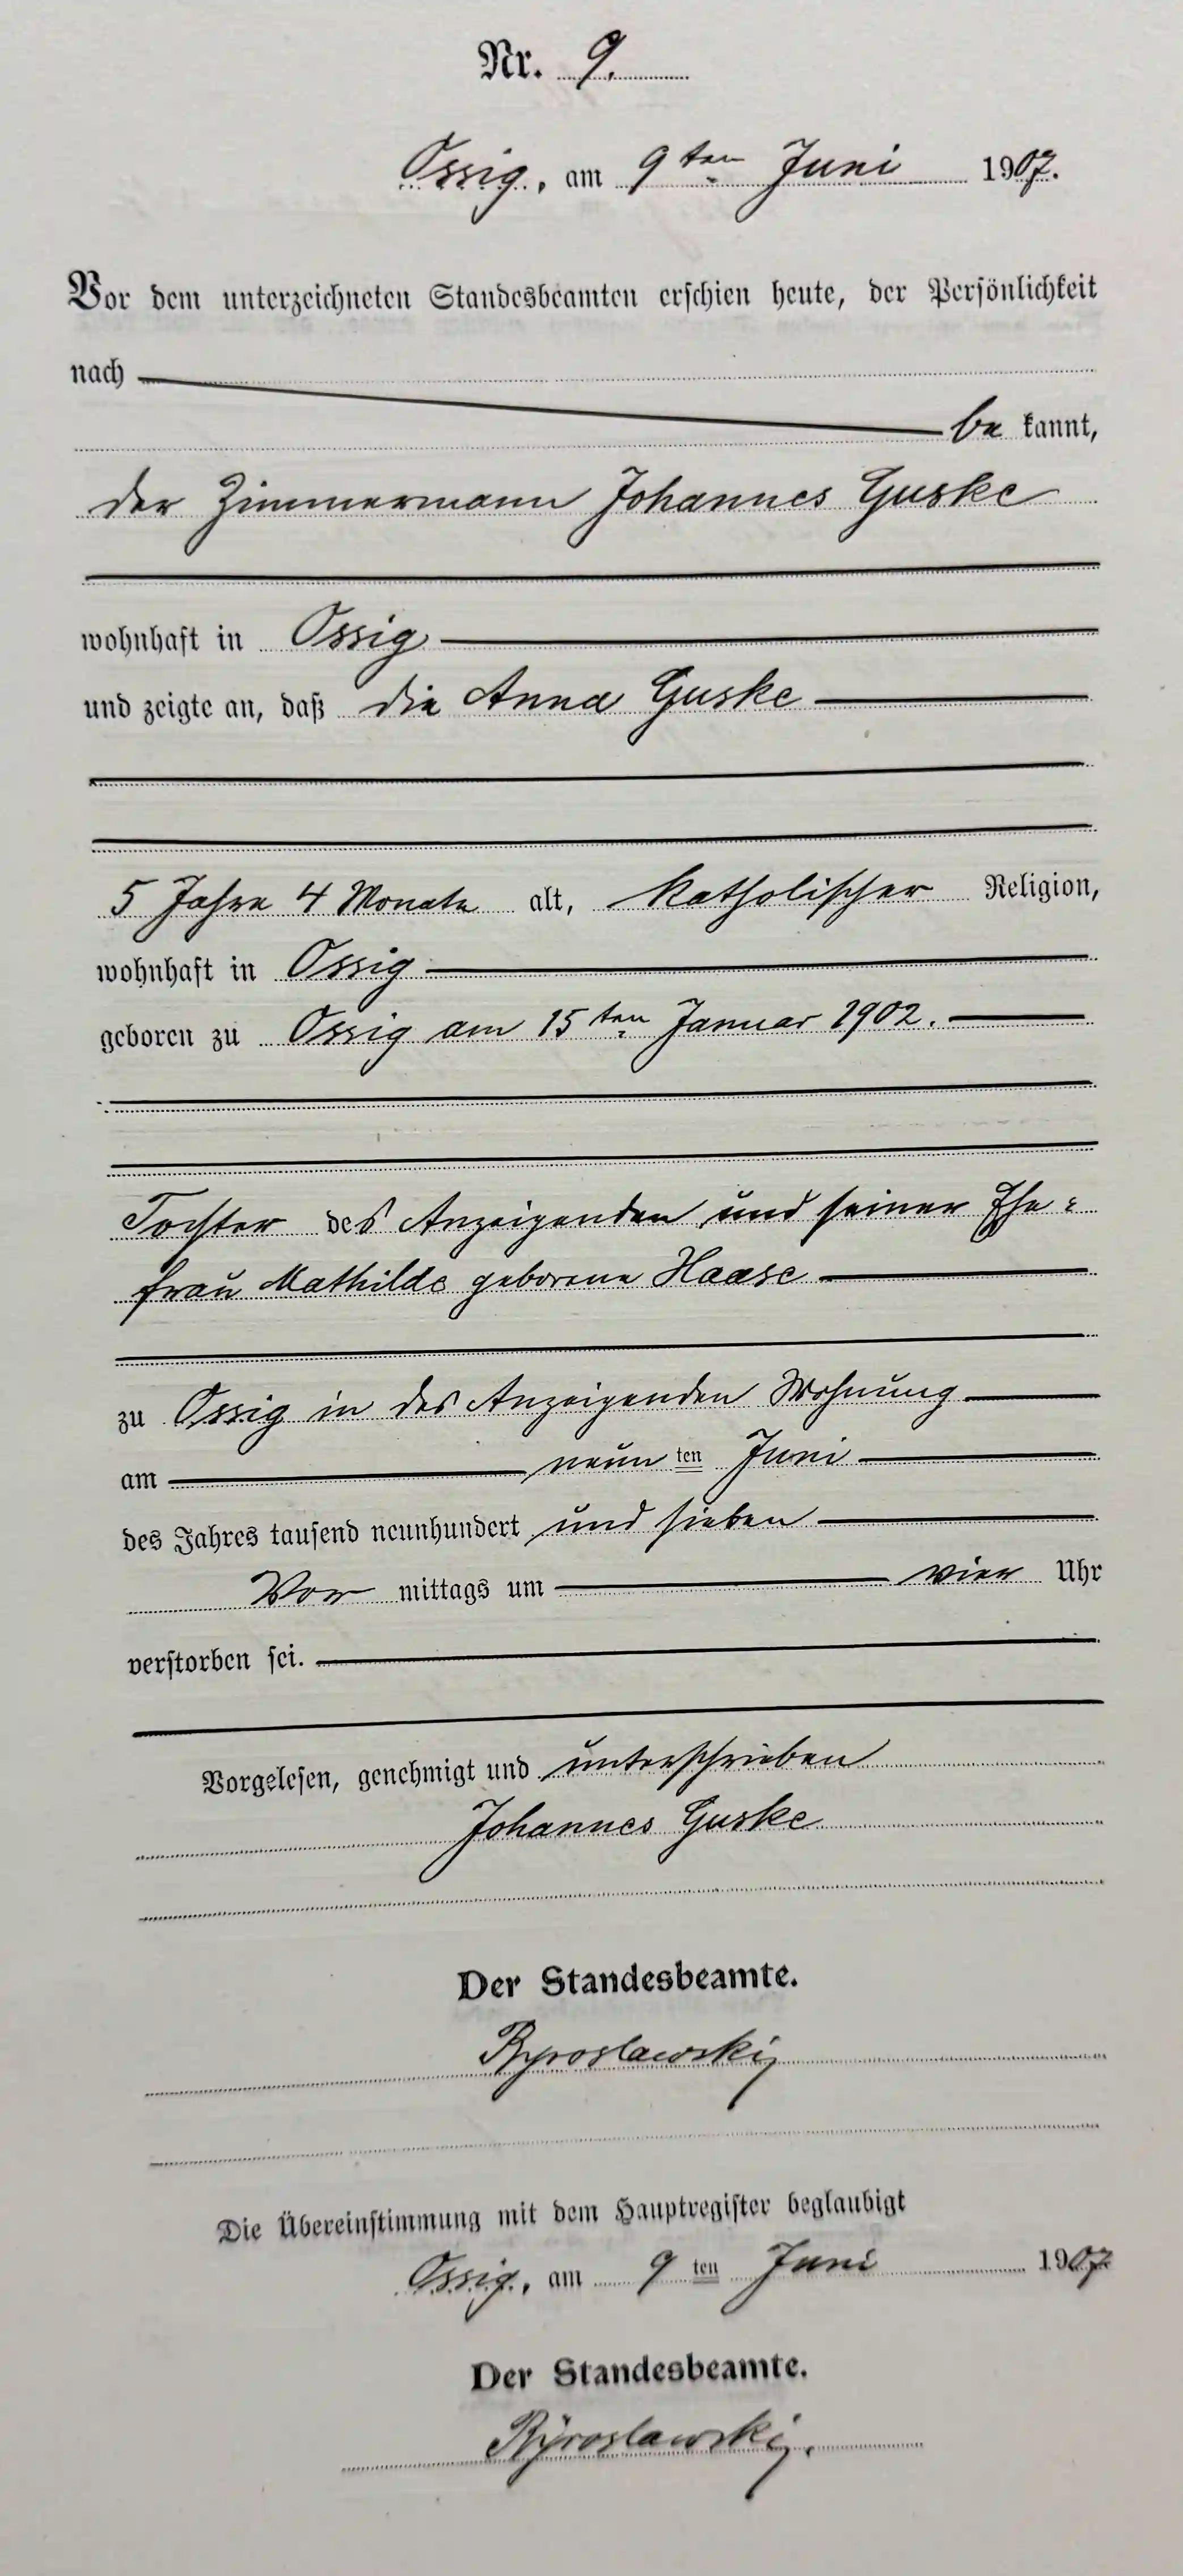 Nr. 9.
Ossig, am 9ten Juni 1907.
Vor dem unterzeichneten Standesbeamten erschien heute, der Persönlichkeit
nach
be kannt,
der Zimmermann Johannes Guske
wohnhaft in Ossig
und zeigte an, daß die Anna Guske
5 Jahre 4 Monate alt, katholischer Religion,
wohnhaft in Ossig
geboren zu Ossig am 15ten Januar 1902.
Tochter des Anzeigenden und seiner Ehe=
frau Mathilde geborene Haase
zu Ossig in des Anzeigenden Wohnung
am neun ten Juni
des Jahres tausend neunhundert und sieben
Vor mittags um vier Uhr
verstorben sei.
Vorgelesen, genehmigt und unterschrieben
Johannes Guske
Der Standesbeamte.
Die Übereinstimmung mit dem Hauptregister beglaubigt
Ossig, am 9 ten Juni 1907
Der Standesbeamte.